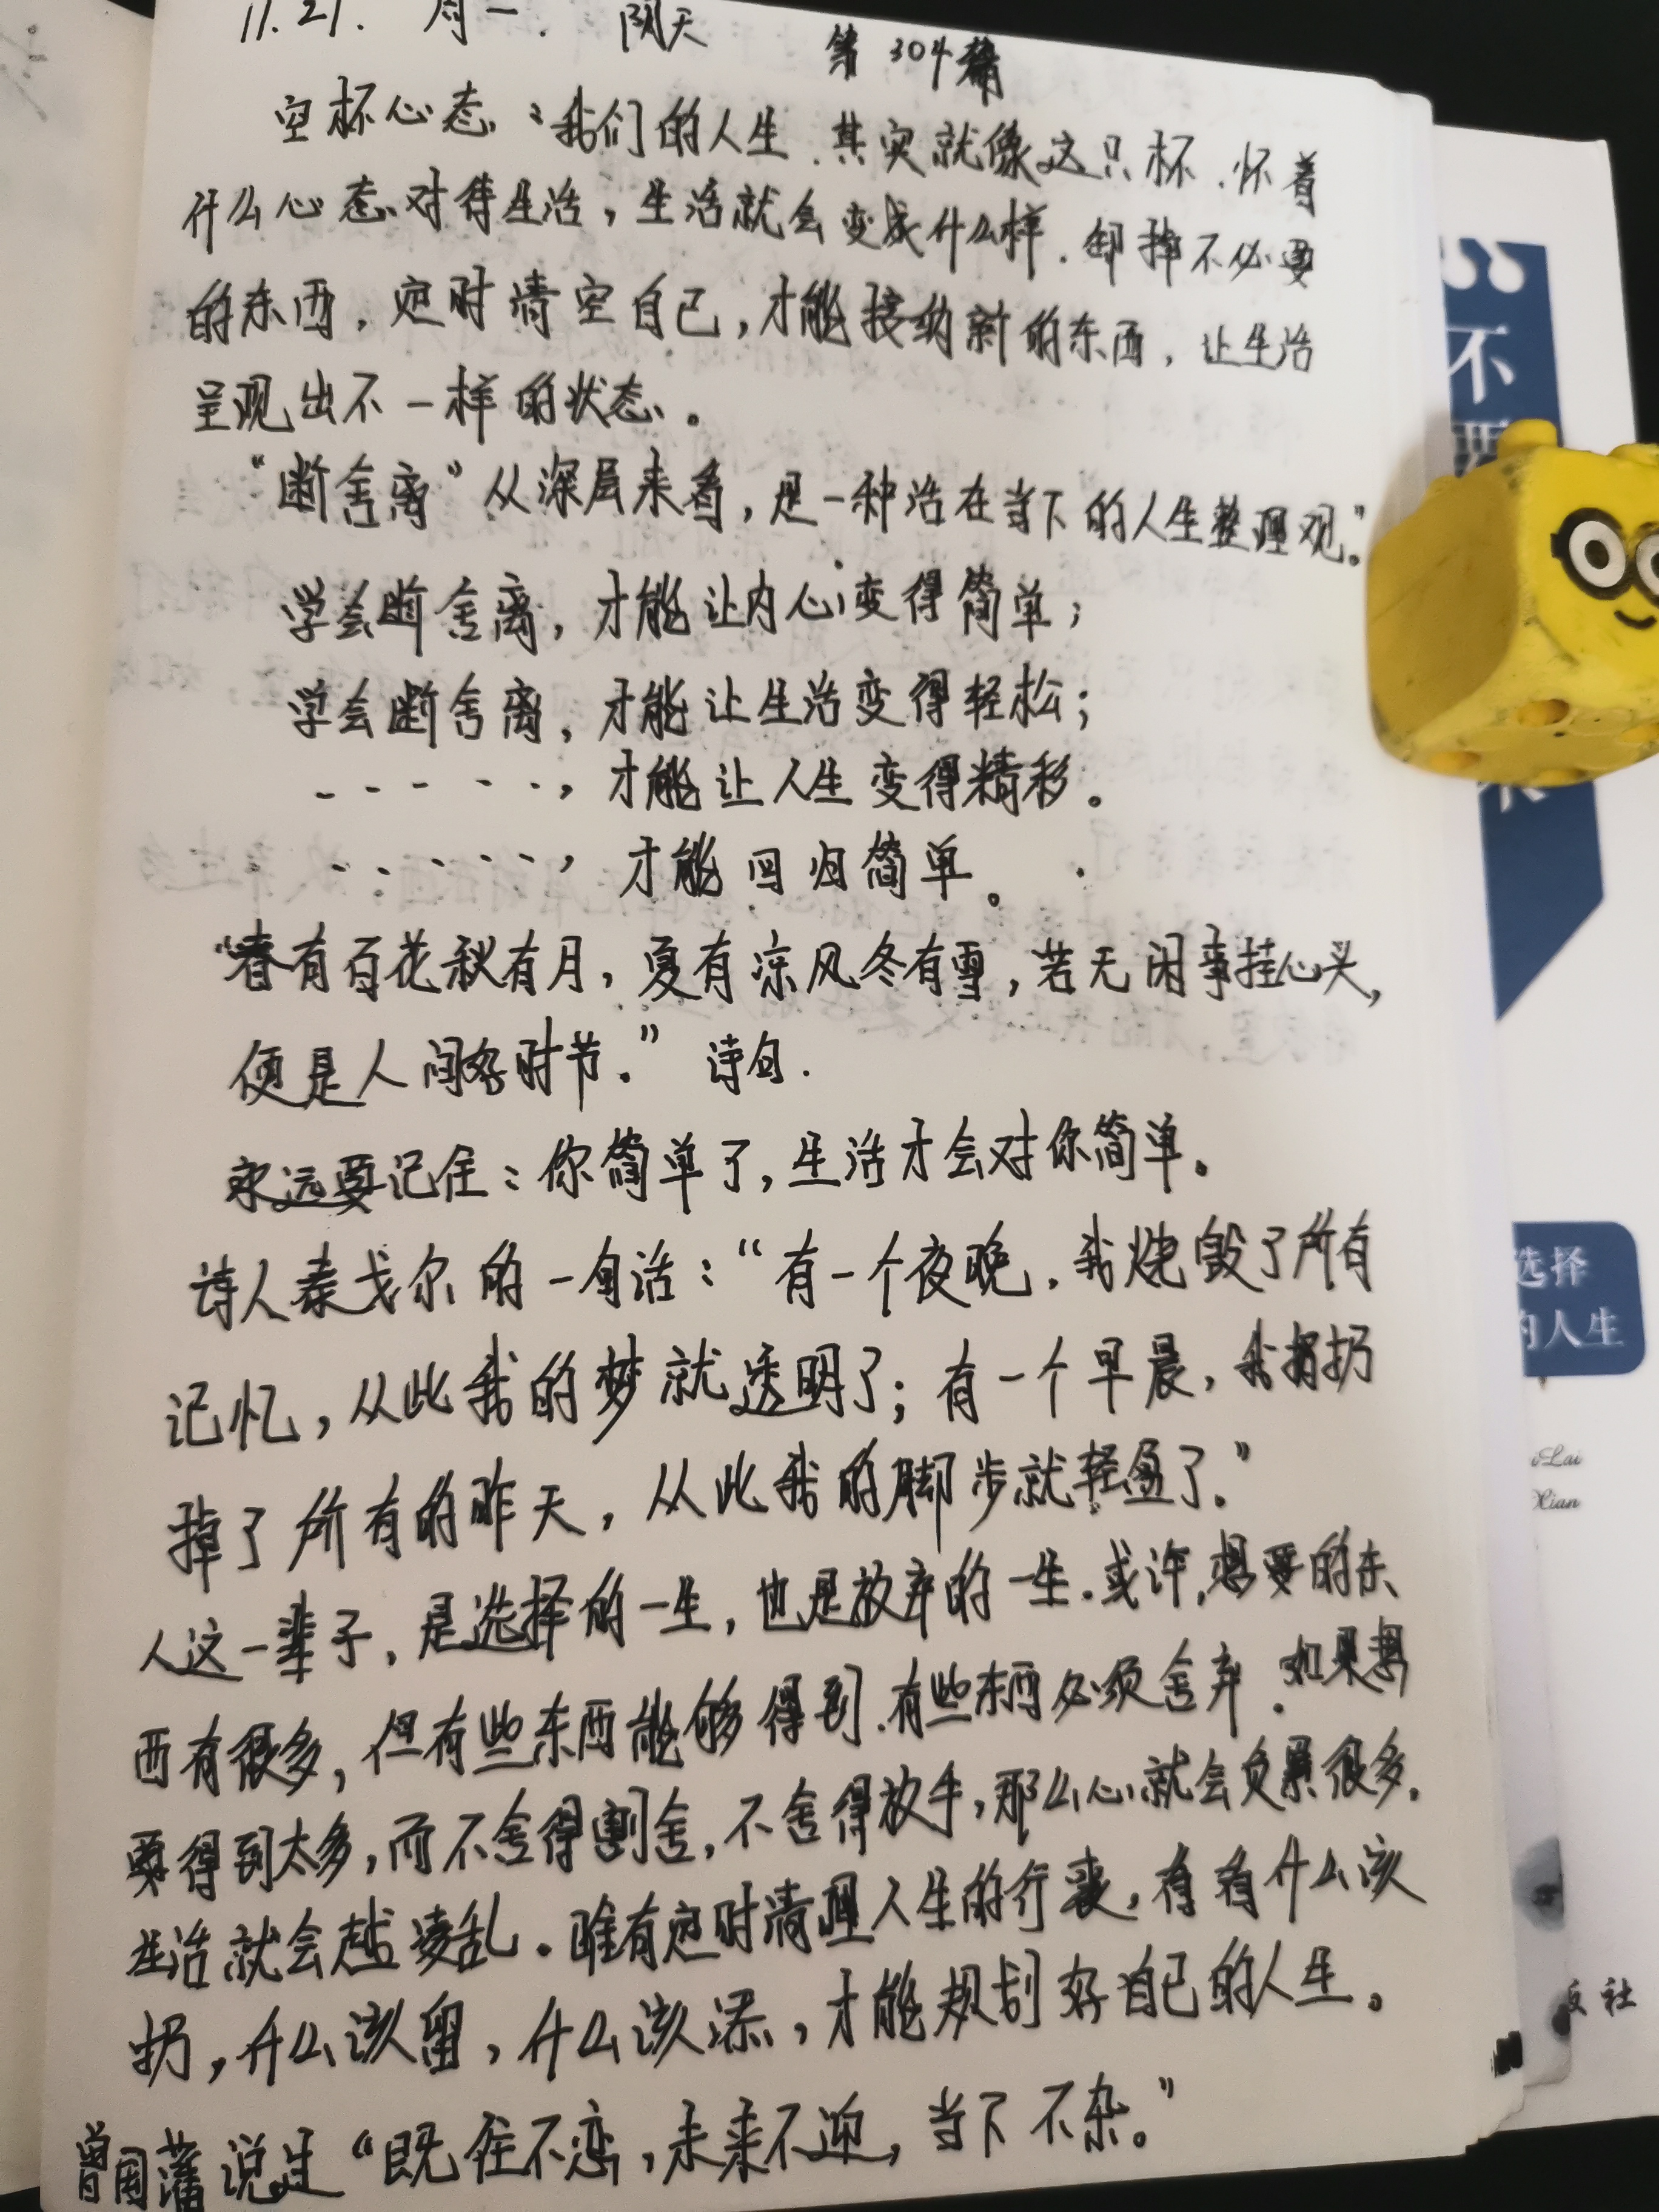 11.21. 周一. 阴天 第304篇
空杯心态:我们的人生.其实就像这只杯.怀着
什么心态对待生活,生活就会变成什么样.卸掉不必要
的东西,定时清空自己,才能接纳新的东西,让生活
呈现出不一样的状态。
“断舍离”从深层来看,是一种活在当下的人生整理观。”
学会断舍离,才能让内心变得简单;
学会断舍离,才能让生活变得轻松;
-----,才能让人生变得精彩。
······,才能回归简单。
“春有百花秋有月,夏有凉风冬有雪,若无闲事挂心头,
便是人间好时节。”诗句.
永远要记住:你简单了,生活才会对你简单。
诗人泰戈尔的一句话:“有一个夜晚,我烧毁了所有
记忆,从此我的梦就透明了;有一个早晨,我扔
掉了所有的昨天,从此我的脚步就轻盈了。”
人这一辈子,是选择的一生,也是放弃的一生.或许,想要的东
西有很多,但有些东西能够得到.有些东西必须舍弃.如果想
要得到太多,而不舍得割舍,不舍得放手,那么心就会负累很多.
生活就会越凌乱。唯有定时清理人生的行囊,看看什么该
扔,什么该留,什么该添,才能规划好自己的人生。
曾国藩说过“既往不恋,未来不迎,当下不杂。”
不要
选择
的人生
Lai
Xian
版社